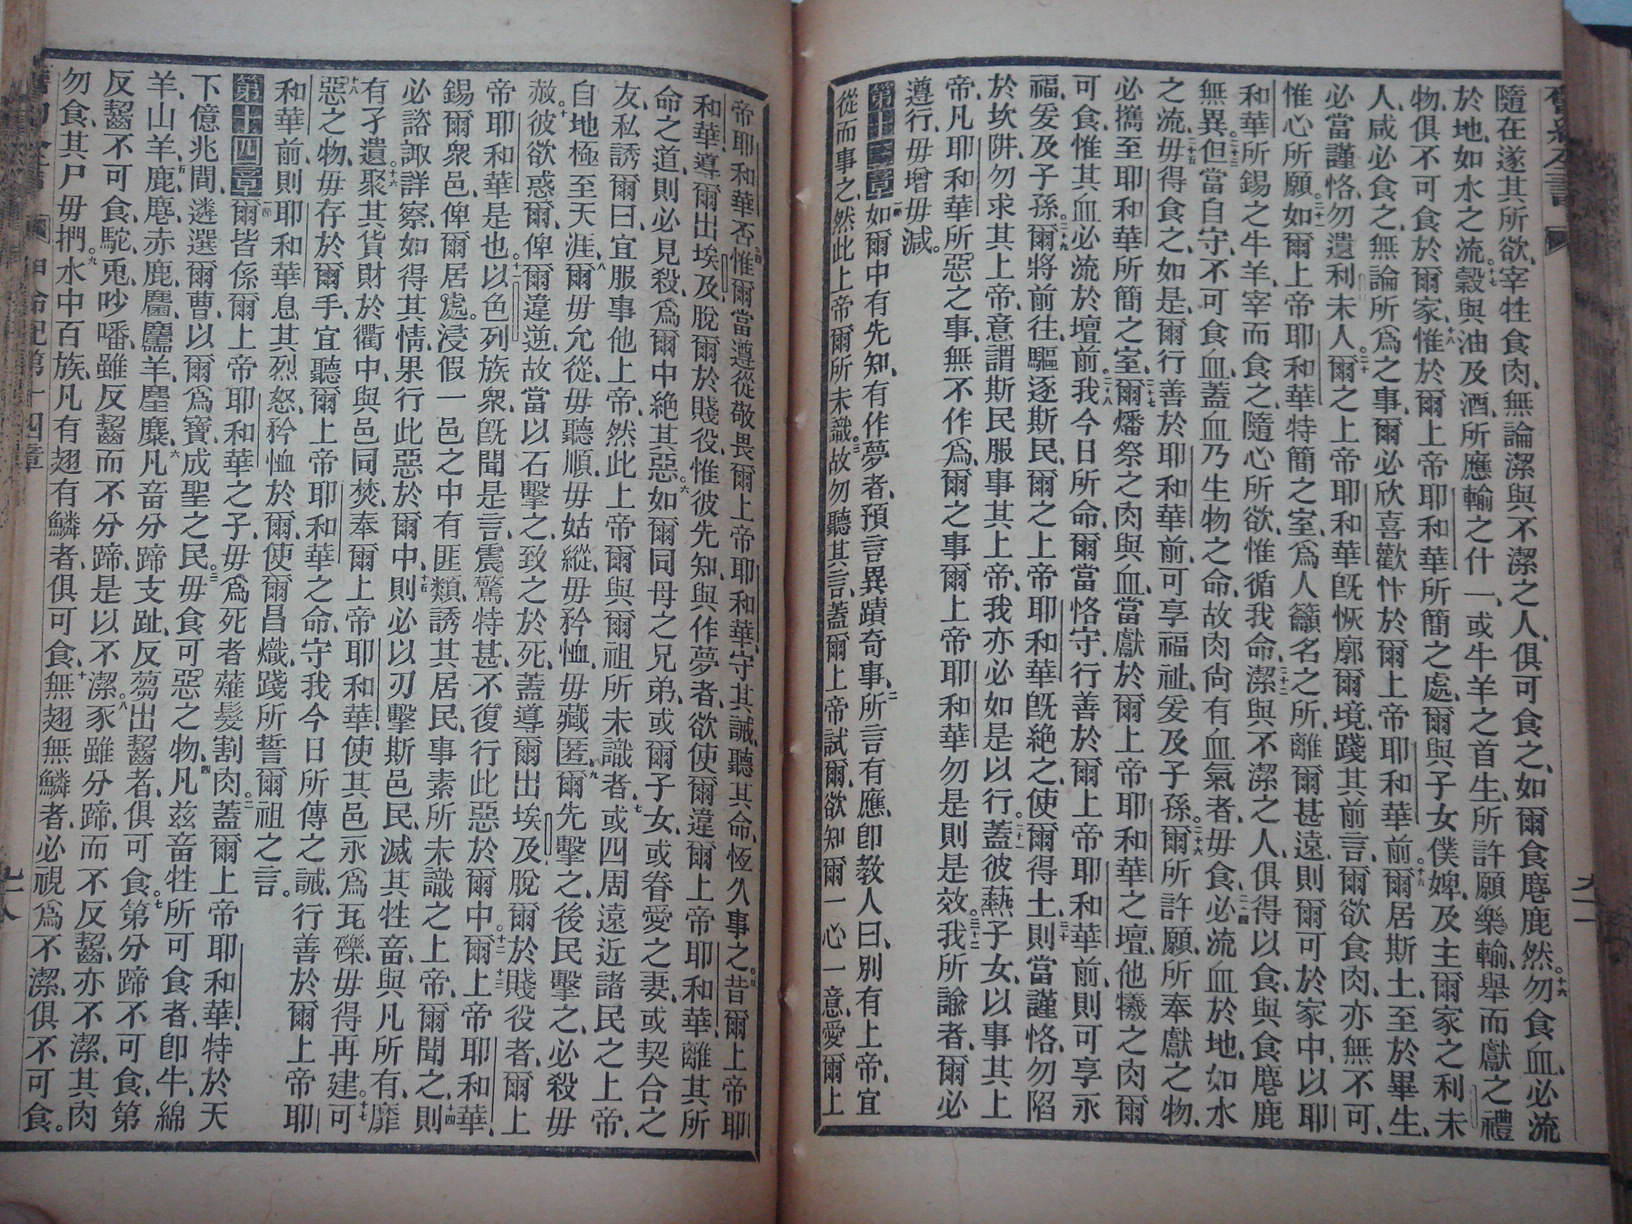 隨在遂其所欲、宰牲食肉、無論潔與不潔之人、俱可食之、如爾食麀鹿然。十六勿食血、必流
於地、如水之流。十七穀與油及酒、所應輸之什一、或牛羊之首生、所許願樂輸、舉而獻之禮
物、俱不可食於爾家、十八惟於爾上帝耶和華所簡之處、爾與子女僕婢、及主爾家之利未
人、咸必食之、無論所爲之事、爾必欣喜歡忭於爾上帝耶和華前。十九爾居斯土、至於畢生、
必當謹恪、勿遺利未人。二十爾之上帝耶和華旣恢廓爾境、踐其前言、爾欲食肉、亦無不可、
惟心所願。二十一如爾上帝耶和華特簡之室、爲人籲名之所、離爾甚遠、則爾可於家中、以耶
和華所錫之牛羊、宰而食之、隨心所欲、惟循我命、二十二潔與不潔之人、俱得以食、與食麀鹿
無異。二十三但當自守、不可食血、蓋血乃生物之命、故肉尙有血氣者、毋食、二十四必流血於地、如水
之流、二十五毋得食之、如是、爾行善於耶和華前、可享福祉、爰及子孫。二十六爾所許願、所奉獻之物、
必攜至耶和華所簡之室、二十七爾燔祭之肉與血、當獻於爾上帝耶和華之壇、他犧之肉爾
可食、惟其血必流於壇前。二十八我今日所命、爾當恪守、行善於爾上帝耶和華前、則可享永
福、爰及子孫。二十九爾將前往、驅逐斯民、爾之上帝耶和華旣絕之、使爾得土、三十則當謹恪、勿陷
於坎阱、勿求其上帝、意謂斯民服事其上帝、我亦必如是以行。三十一蓋彼爇子女、以事其上
帝、凡耶和華所惡之事、無不作爲、爾之事爾上帝耶和華、勿是則是效。三十二我所諭者、爾必
遵行、毋增毋減。
第十三章一節如爾中有先知、有作夢者、預言異蹟奇事、二所言有應、卽教人曰、別有上帝、宜
從而事之、然此上帝、爾所未識、三故勿聽其言、蓋爾上帝試爾、欲知爾一心一意、愛爾上
帝耶和華否、四惟爾當遵從敬畏爾上帝耶和華、守其誡、聽其命、恆久事之。五昔爾上帝耶
和華導爾出埃及、脫爾於賤役、惟彼先知、與作夢者、欲使爾違爾上帝耶和華、離其所
命之道、則必見殺、爲爾中絕其惡。六如爾同母之兄弟、或爾子女、或眷愛之妻、或契合之
友、私誘爾曰、宜服事他上帝、然此上帝、爾與爾祖所未識者、七或四周遠近諸民之上帝、
自地極至天涯、八爾毋允從、毋聽順、毋姑縱、毋矜恤、毋藏匿、九爾先擊之、後民擊之、必殺毋
赦。十彼欲惑爾、俾爾違逆、故當以石擊之、致之於死、蓋導爾出埃及、脫爾於賤役者、爾上
帝耶和華是也。十一以色列族衆、旣聞是言、震驚特甚、不復行此惡於爾中。十二爾上帝耶和華、
錫爾衆邑、俾爾居處。十三浸假一邑之中有匪類、誘其居民、事素所未識之上帝、爾聞之、十四則
必諮諏詳察、如得其情、果行此惡於爾中、十五則必以刃擊斯邑民、滅其牲畜、與凡所有、靡
有孑遺。十六聚其貨財於衢中、與邑同焚、奉爾上帝耶和華、使其邑永爲瓦礫、毋得再建。十七可
惡之物、毋存於爾手、十八宜聽爾上帝耶和華之命、守我今日所傳之誡、行善於爾上帝耶
和華前、則耶和華息其烈怒、矜恤於爾、使爾昌熾、踐所誓爾祖之言。
第十四章一節爾皆係爾上帝耶和華之子、毋爲死者薙髮割肉。二蓋爾上帝耶和華、特於天
下億兆間、遴選爾曹、以爾爲寶、成聖之民。三毋食可惡之物、四凡兹畜牲所可食者、卽牛、綿
羊、山羊、五鹿、麀、赤鹿、麢、麢羊、麈、麋、六凡畜分蹄支趾、反芻出齧者、俱可食。七第分蹄不可食、第
反齧不可食、駝、兎、吵噃、雖反齧而不分蹄、是以不潔。八豕雖分蹄、而不反齧、亦不潔、其肉
勿食、其尸毋捫。九水中百族、凡有翅有鱗者、俱可食、十無翅無鱗者、必視爲不潔、俱不可食。